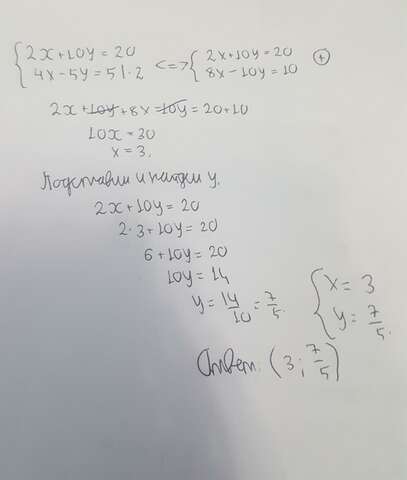 {2x+10y=20 <=> {2x+10y=20 (+)
{4x-5y=5|·2 {8x-10y=10
2x+10y+8x-10y=20+10
10x=30
x=3.
Подставим и найдём y.
2x+10y=20
2·3+10y=20
6+10y=20
10y=14
y=14/10=7/5.
{x=3
{y=7/5.
Ответ: (3; 7/5)